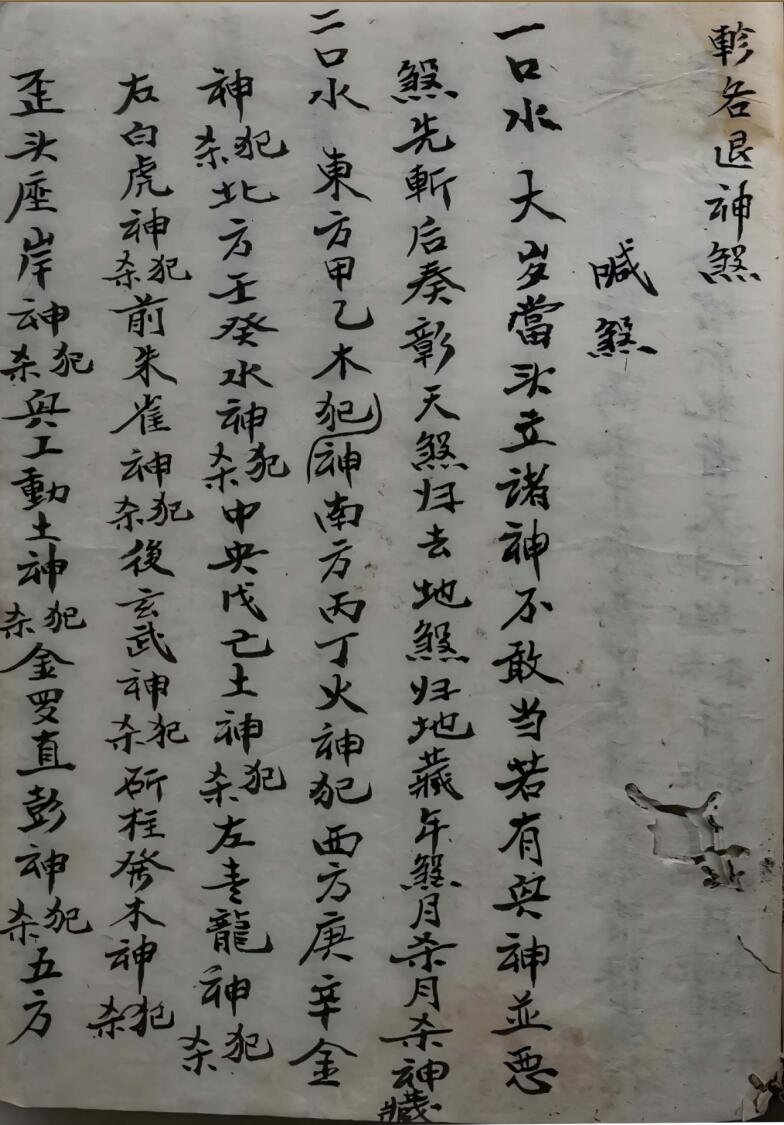 軫各退神煞
喊煞
一口水 大岁當头立諸神不敢当若有與神並恶
煞先斬后奏彰天煞归去地煞归地藏年煞月杀月杀神藏
二口水 東方甲乙木犯神南方丙丁火神犯西方庚辛金
神犯杀北方壬癸水神犯杀中央戊己土神犯杀左青龍神犯杀
右白虎神犯杀前朱雀神犯杀後玄武神犯杀斫柱發木神犯杀
歪头座岸神犯杀與工動土神犯杀金罗直彭神犯杀五方